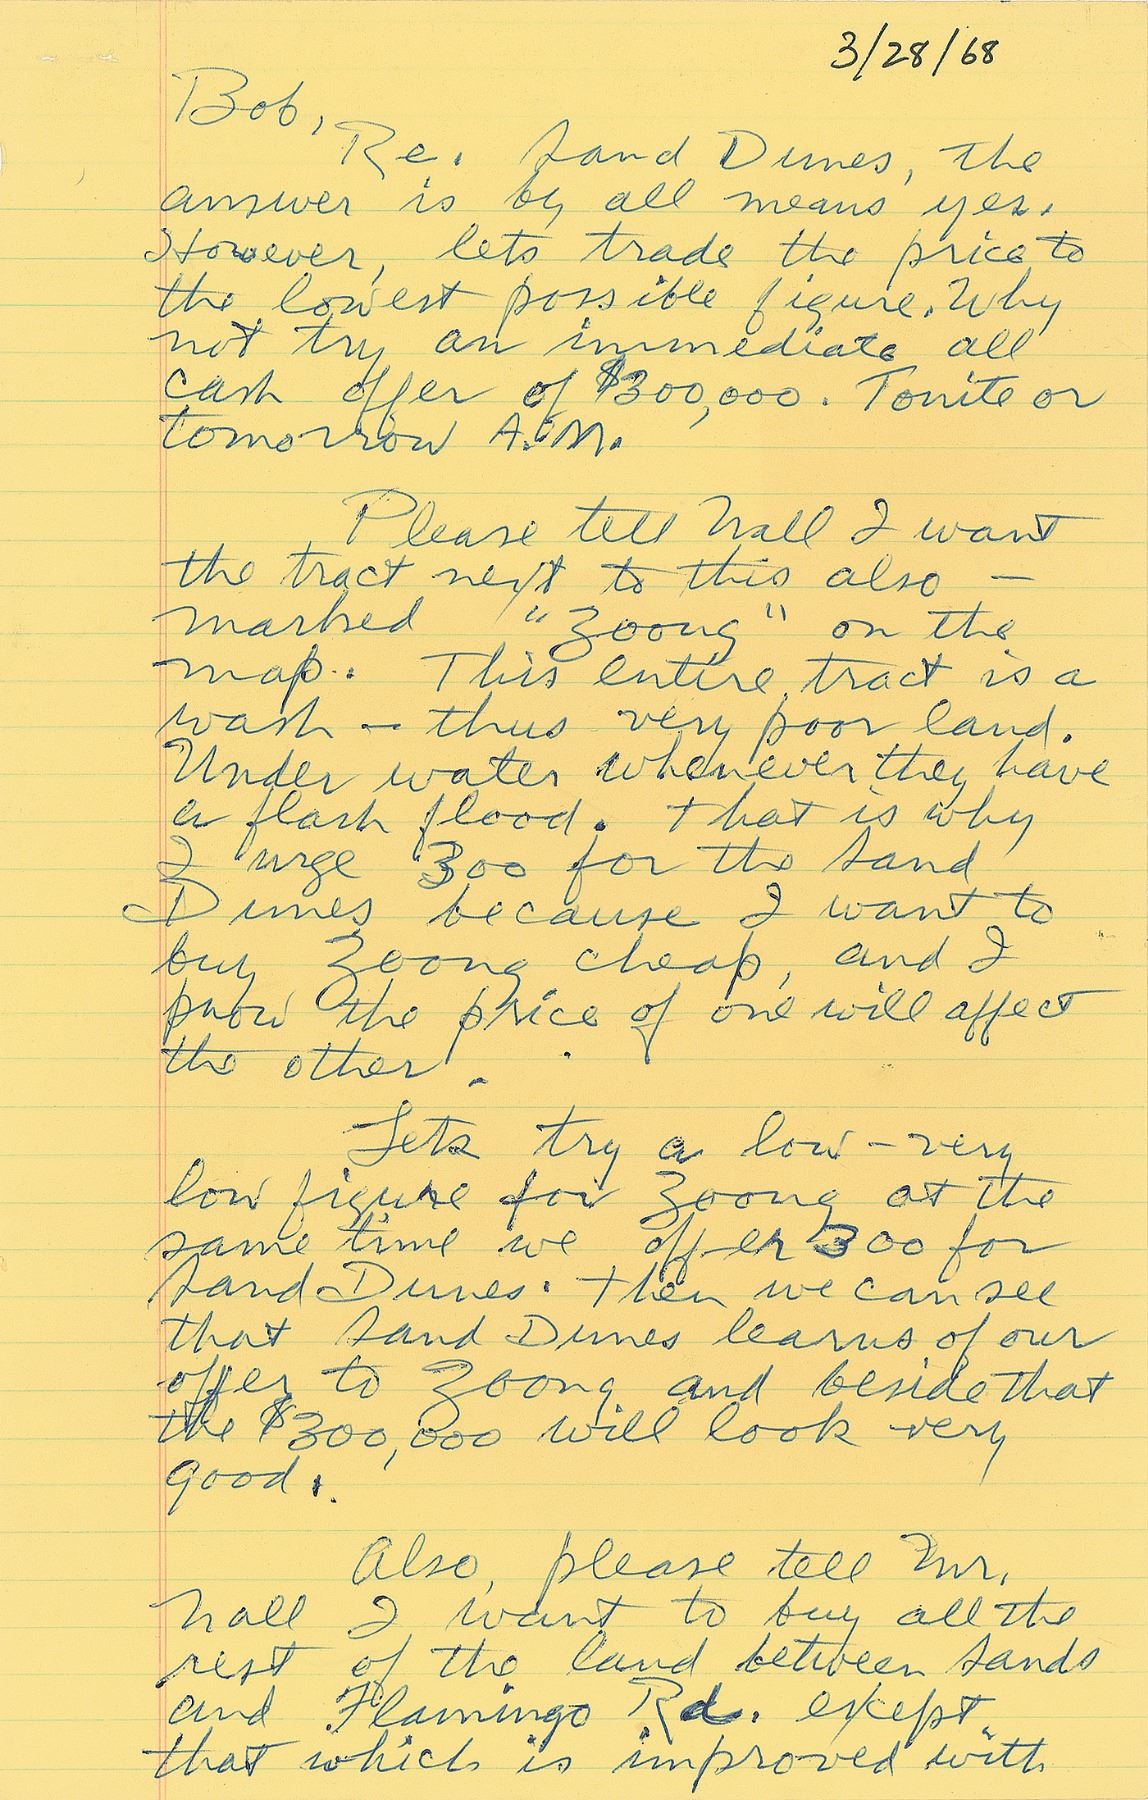 3/28/68
Bob,
Re. Sand Dunes, the
answer is by all means yes.
However, lets trade the price to
the lowest possible figure. Why
not try an immediate all
cash offer of $300,000. Tonite or
tomorrow A.M.
Please tell Nall I want
the tract next to this also —
marked "Zoong" on the
map. This entire tract is a
wash — thus very poor land.
Under water whenever they have
a flash flood. That is why
I urge 300 for the Sand
Dunes because I want to
buy Zoong cheap, and I
know the price of one will affect
the other.
Lets try a low – very
low figure for Zoong at the
same time we offer 300 for
Sand Dunes. Then we can see
that Sand Dunes learns of our
offer to Zoong and beside that
the $300,000 will look very
good.
Also, please tell Mr.
Nall I want to buy all the
rest of the land between Sands
and Flamingo Rd. exept
that which is improved with